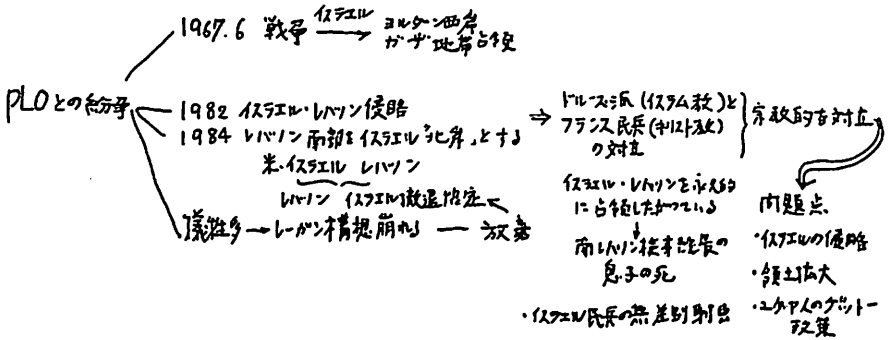 PLOとの紛争
1967.6 戦争
イスラエル
ヨルダン西岸
ガザ地帯占領
1982 イスラエル・レバノン侵略
1984 レバノン南部を イスラエル「北岸」とする
米・イスラエル レバノン
レバノン イスラエル撤退協定
犠牲多→レーガン構想崩れる — 放棄
⇒ ドルーズ派(イスラム教)と
フランス民兵(キリスト教)
の対立
宗教的な対立
イスラエル・レバノンを永久的
に占領したがっている
南レバノン
息子の死
・イスラエル民兵の無差別射殺
問題点
・イスラエルの侵略
・領土拡大
・ユダヤ人のゲットー
政策